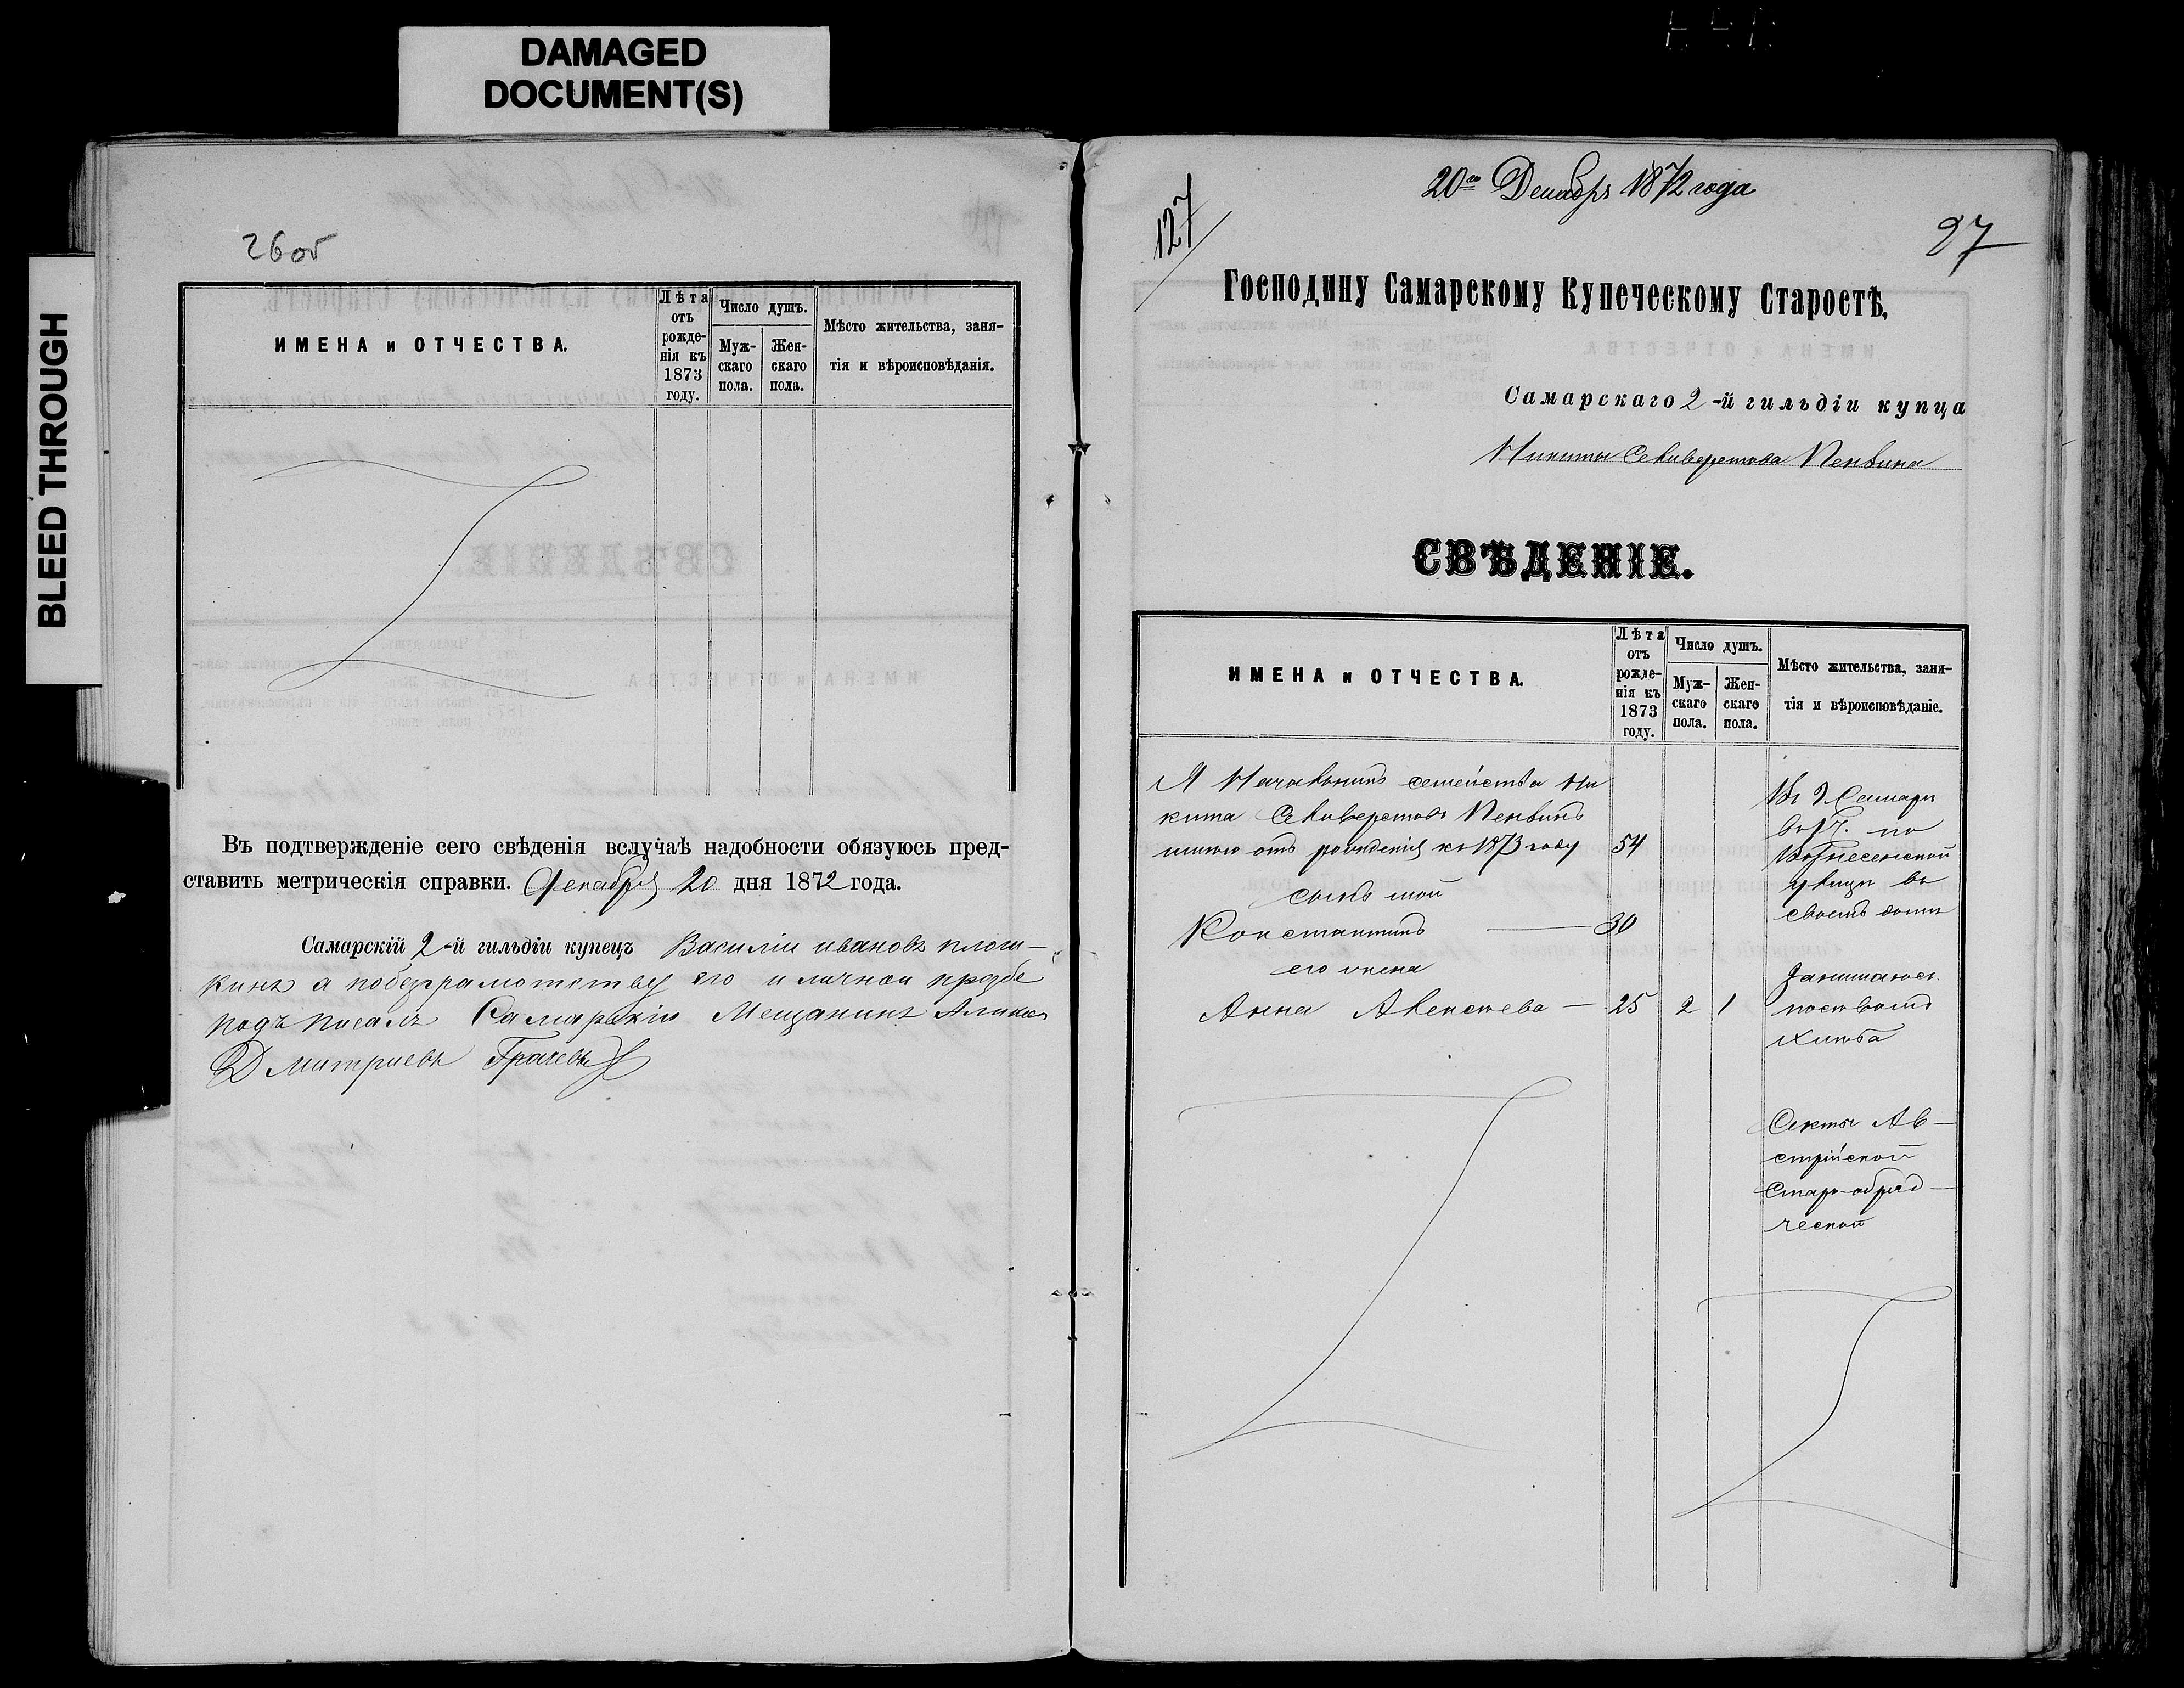 DAMAGED
DOCUMENT(S)
BLEED THROUGH
26 об
ИМЕНА и ОТЧЕСТВА.
Лѣта
отъ
рожде-
нія къ
1873
году.
Число душъ.
Муж-
скаго
пола.
Жен-
скаго
пола.
Мѣсто жительства, заня-
тія и вѣроисповѣданія.
Въ подтвержденіе сего свѣденія вслучаѣ надобности обязуюсь пред-
ставить метрическія справки. Декабря 20 дня 1872 года.
Самарскій 2-й гильдіи купецъ Василіи ивановъ
а побезграмотству его и личной прозбе
подъписалъ Самарскіи Мещанинъ
Дмитриевъ Грачевъ
20го Декабрь 1872 года
127
27
Господину Самарскому Купеческому Старостѣ,
Самарскаго 2-й гильдіи купца
Никиты Селиверстова
СВѢДЕНІЕ.
ИМЕНА и ОТЧЕСТВА.
Лѣта
отъ
рожде-
нія къ
1873
году.
Число душъ.
Муж-
скаго
пола.
Жен-
скаго
пола.
Мѣсто жительства, заня-
тія и вѣроисповѣданіе.
Я Начальникъ семейства Ни
кита Селиверстовъ
отъ рожденія къ 1873 году 54
сынъ мой
Константинъ 30
его жена
Анна Алексеева — 25 2 1
Въ г Самары
во 2 ч. по
Вознесенской
улицы въ
своемъ доми
Занимаюсь
хлиба
Секты Ав-
стрійской
Старо-обряд-
ческой